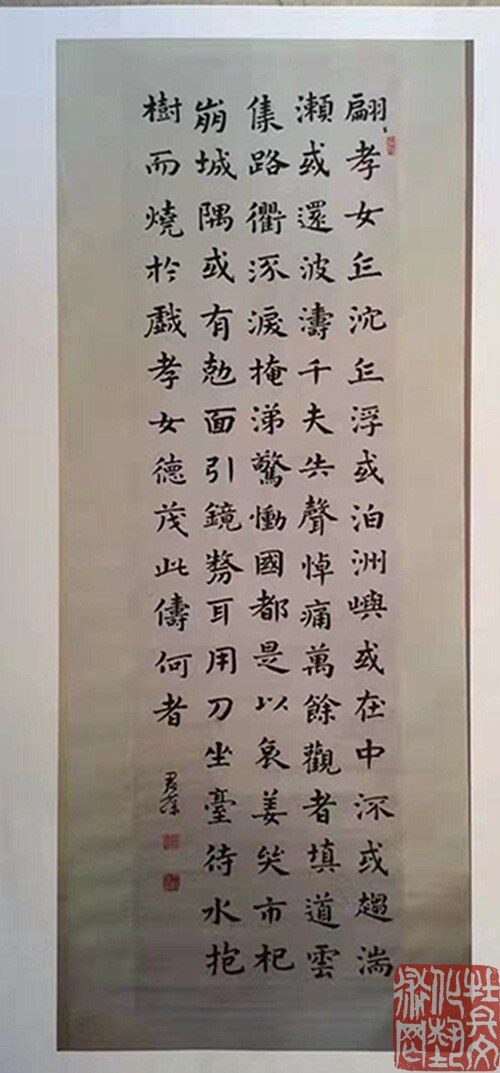 翩〻孝女乍沉乍浮或泊洲嶼或在中流或趨湍
瀨或還波濤千夫失聲悼痛萬餘觀者填道雲
集路衢流淚掩涕驚慟國都是以哀姜哭市杞
崩城隅或有勊面引鏡剺耳用刀坐臺待水抱
樹而燒於戲孝女德茂此儔何者
牡丹文化藝術网